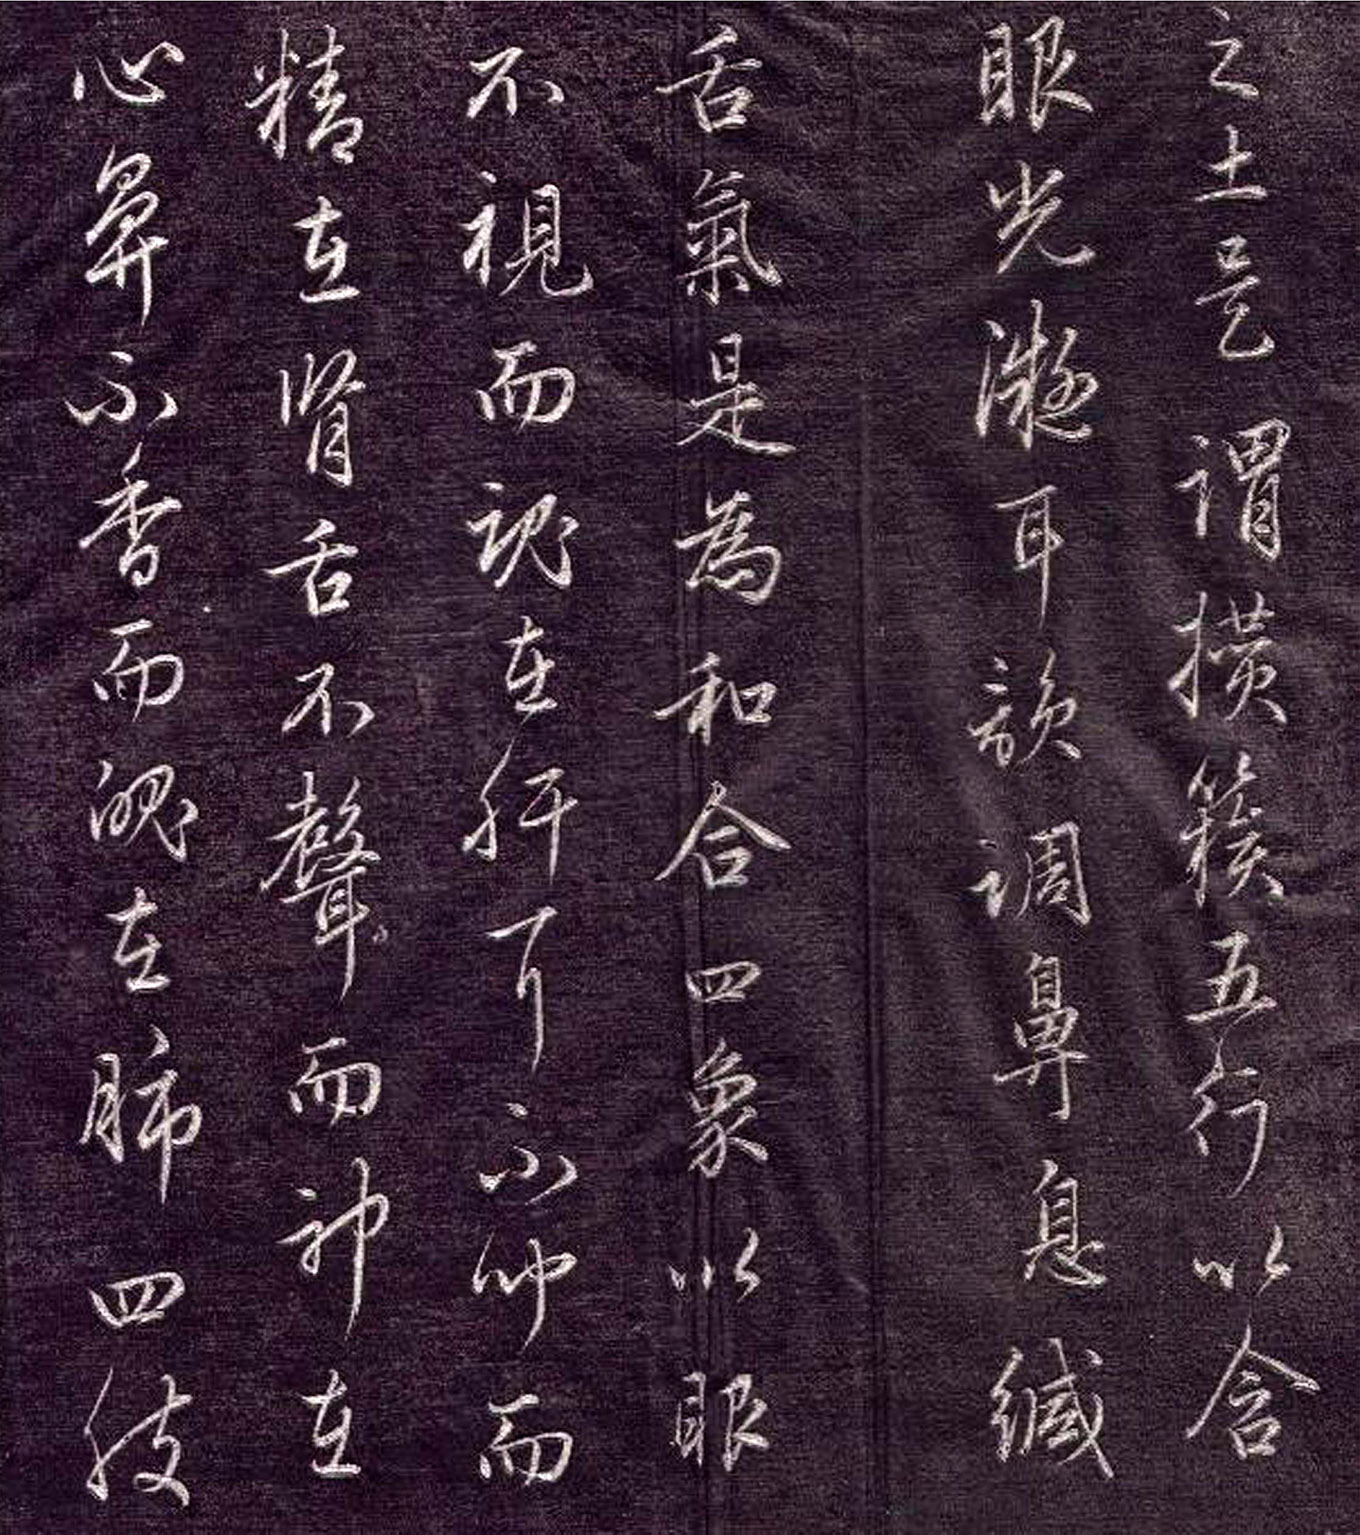 之土是謂攢簇五行以含
眼光凝耳韻調鼻息緘
舌氣是為和合四象以眼
不視而魂在肝耳不聞而
精在腎舌不聲而神在
心鼻不香而魄在肺四肢